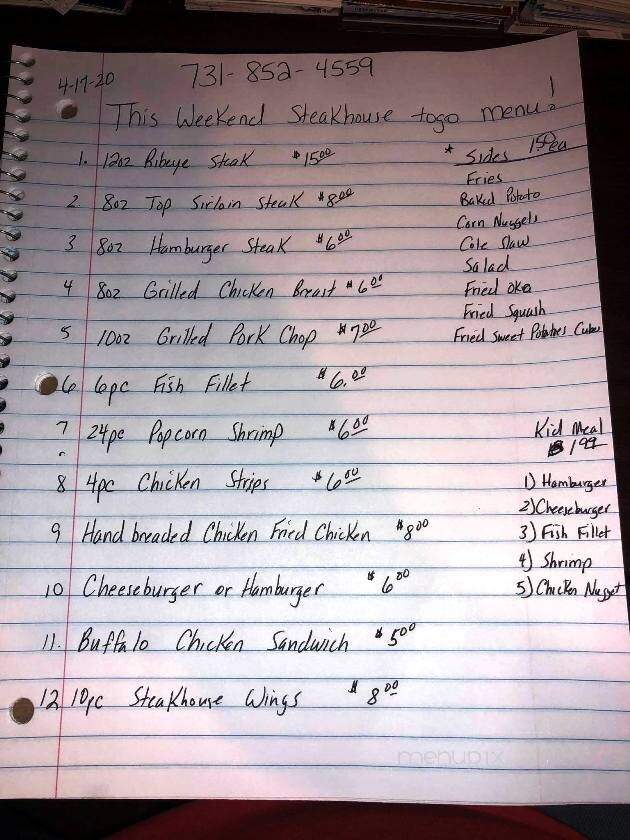 4-17-20 731-852-4559
This Weekend Steakhouse togo menu!
1. 12oz Ribeye Steak $15.00
2 8oz Top Sirloin Steak $8.00
3 8oz Hamburger Steak $6.00
4 8oz Grilled Chicken Breast $6.00
5 10oz Grilled Pork Chop $7.00
6. 6pc Fish Fillet $6.00
7 24pc Popcorn Shrimp $6.00
8 4pc Chicken Strips $6.00
9 Hand breaded Chicken Fried Chicken $8.00
10 Cheeseburger or Hamburger $6.00
11. Buffalo Chicken Sandwich $5.00
12 10pc Steakhouse Wings $8.00
* Sides ea
Fries
Baked Potato
Corn Nuggets
Cole Slaw
Salad
Fried oka
Fried Squash
Fried Sweet Potatoes Cubes
Kid Meal
$1.99
1) Hamburger
2) Cheeseburger
3) Fish Fillet
4) Shrimp
5) Chicken Nugget
menupix